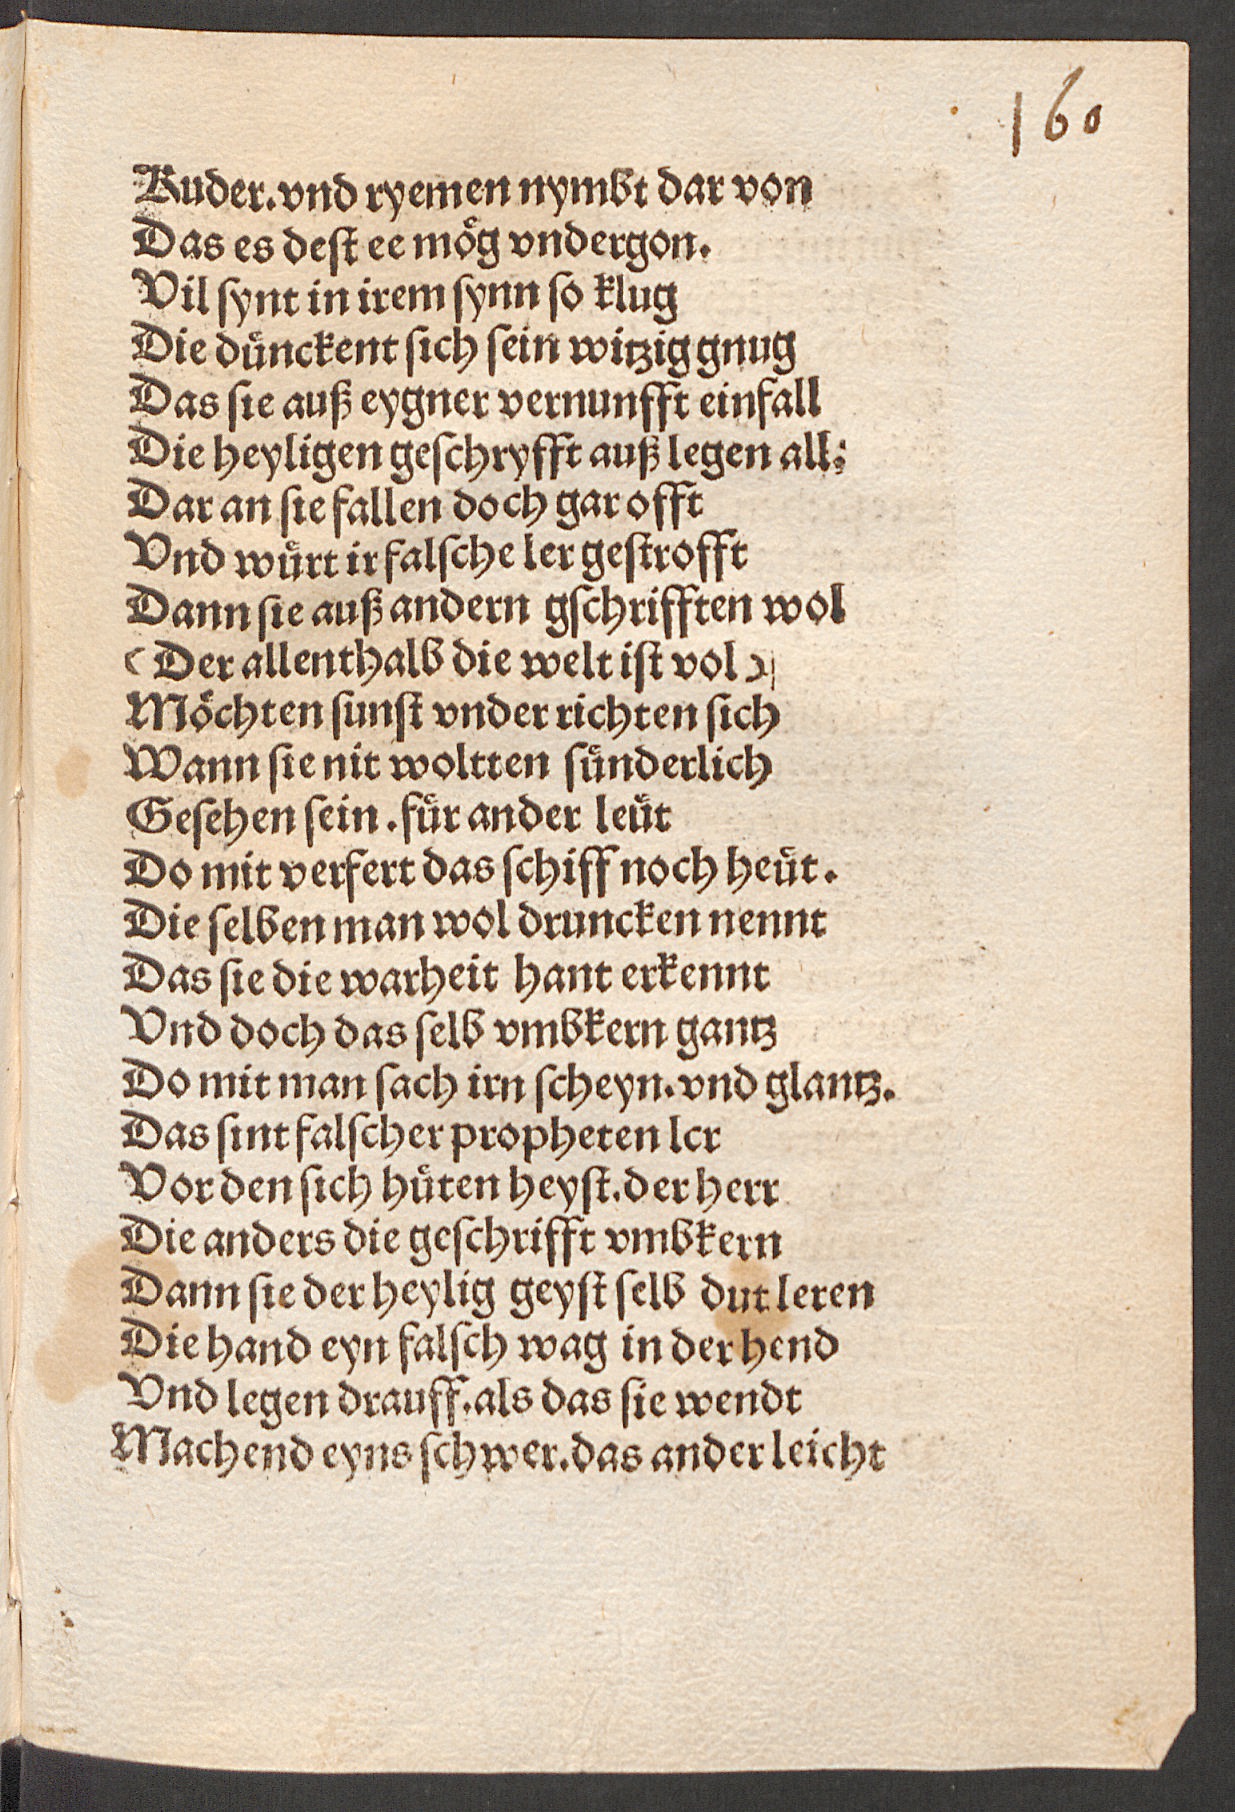 160
Ruder. vnd ryemen nymbt dar von
Das es deſt ee moͤg vndergon.
Vil ſynt in irem ſynn ſo klug
Die duͤnckent ſich ſein witzig gnug
Das ſie auß eygner vernunfft einfall
Die heyligen geſchryfft auß legen all:
Dar an ſie fallen doch gar offt
Vnd wuͤrt ir falſche ler geſtrofft
Dann ſie auß andern gſchrifften wol
(Der allenthalb die welt iſt vol)
Moͤchten ſunſt vnder richten ſich
Wann ſie nit woltten ſuͤnderlich
Geſehen ſein. fuͤr ander leuͤt
Do mit verfert das ſchiff noch heuͤt.
Die ſelben man wol druncken nennt
Das ſie die warheit hant erkennt
Vnd doch das ſelb vmbkern gantz
Do mit man ſach irn ſcheyn. vnd glantz.
Das ſint falſcher propheten lcr
Vor den ſich huͤten heyſt. der herr
Die anders die geſchrifft vmbkern
Dann ſie der heylig geyſt ſelb dut leren
Die hand eyn falſch wag in der hend
Vnd legen drauff. als das ſie wendt
Machend eyns ſchwer. das ander leicht